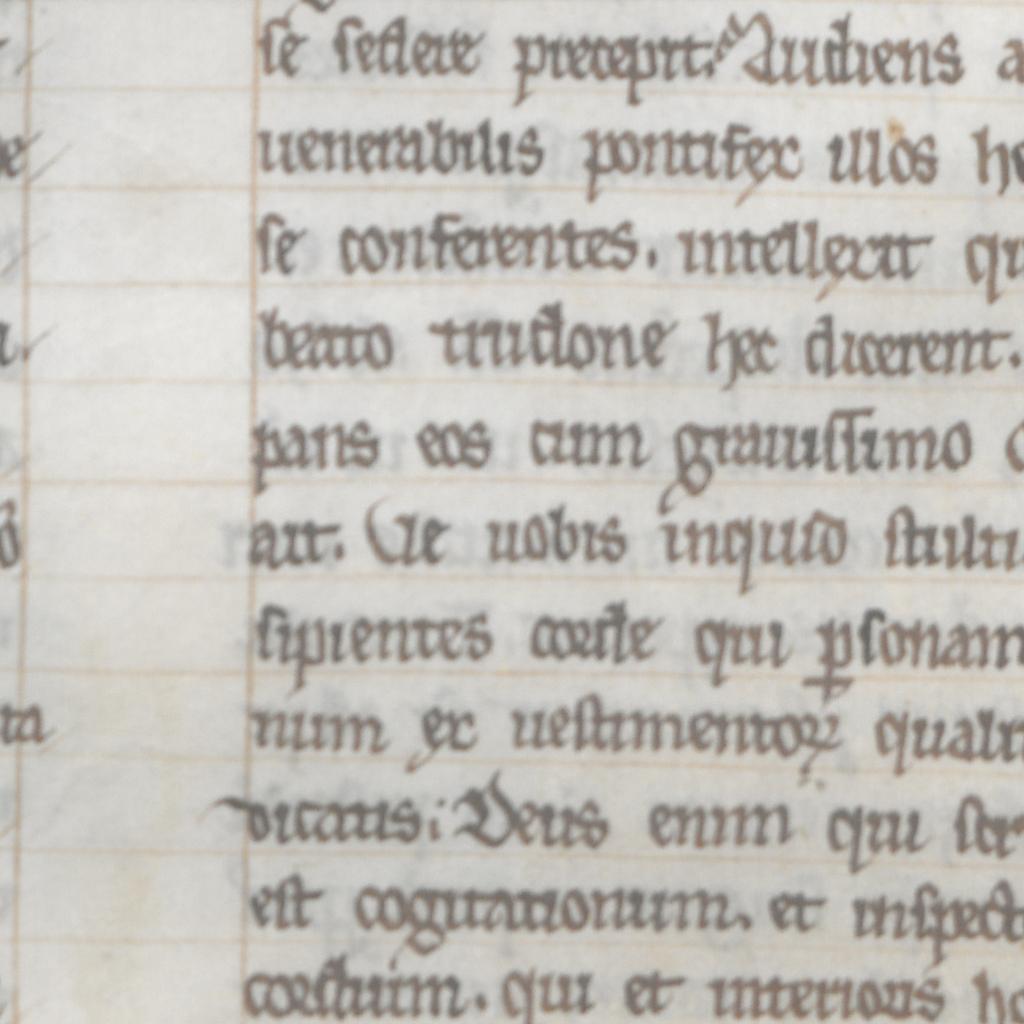 se sedere precepit. Audiens a
uenerabilis pontifex illos he
se conferentes. intellexit qu
beato trudone hec dicerent.
pans eos cum grauissimo
ait. Ue uobis inquid stulti
sipientes corde qui ꝑsonam
num ex uestimentoꝝ qualit
dicatis; Deus enim qui scr
est cogitationum. et inspect
cordium. qui et interioris ho